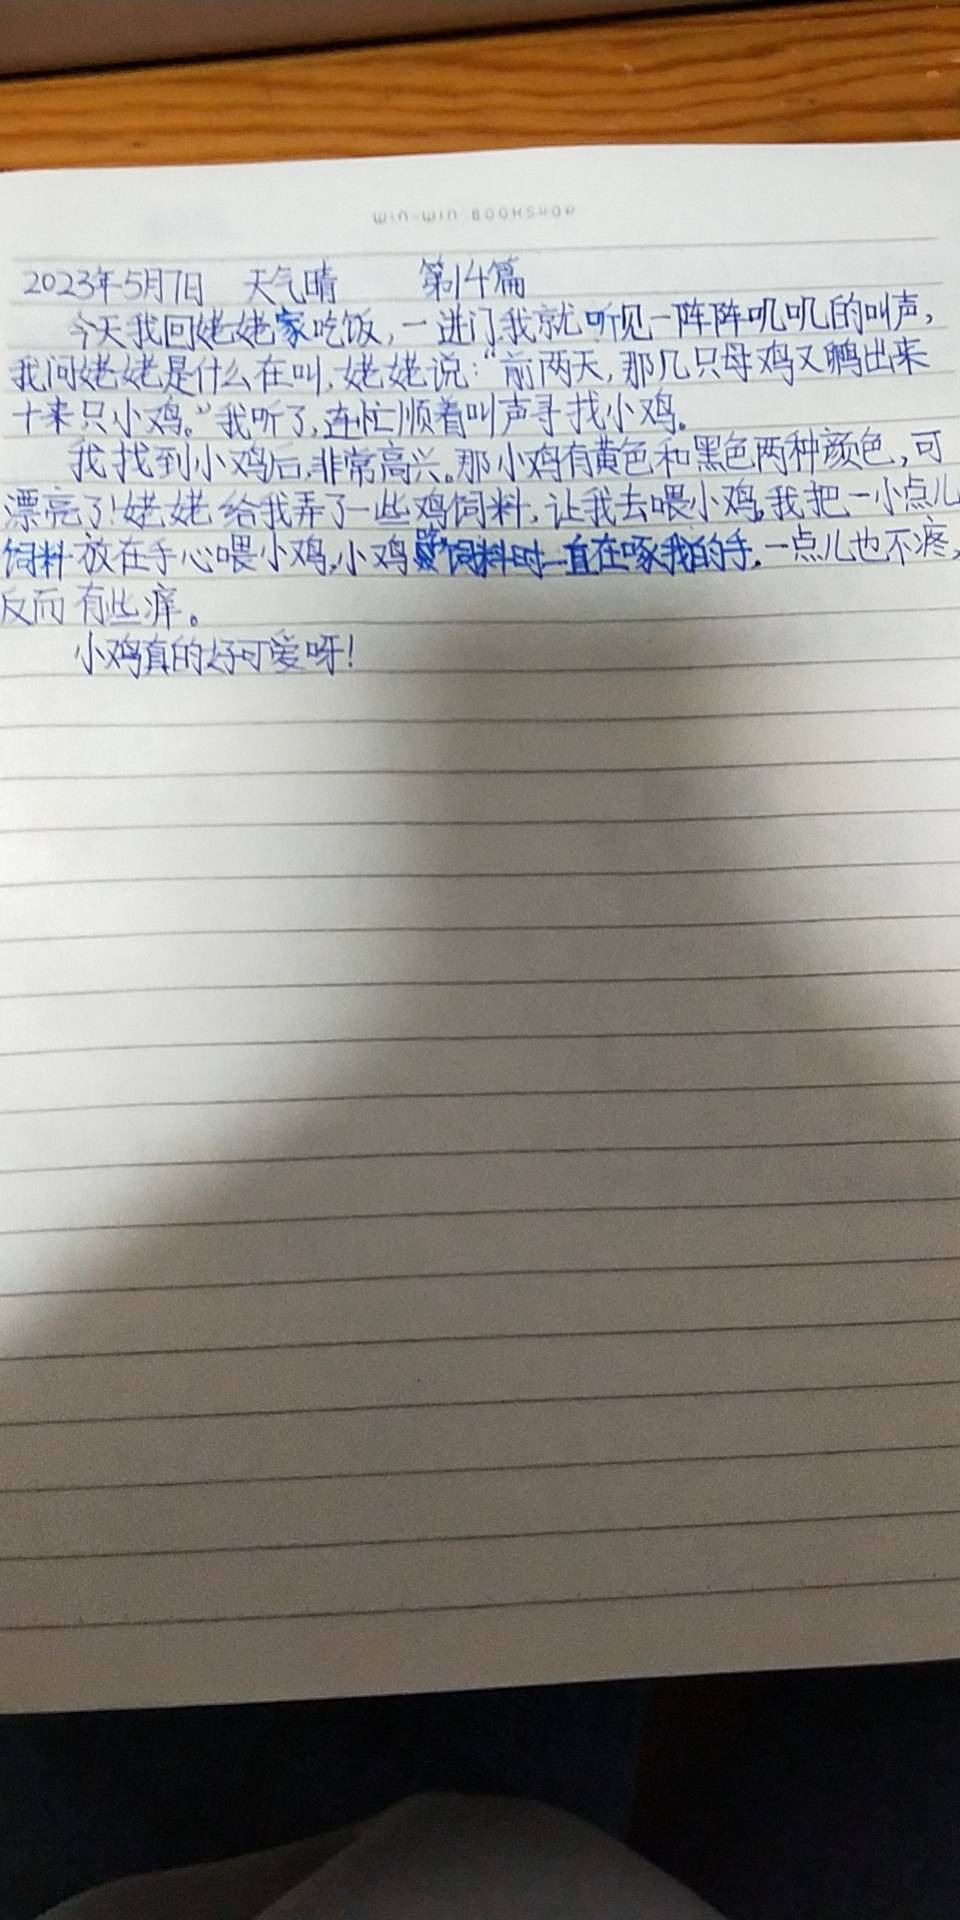 WIN-WIN BOOKSHOP
2023年5月7日 天气晴 第14篇
今天我回姥姥家吃饭,一进门,我就听见一阵阵叽叽的叫声,
我问姥姥是什么在叫,姥姥说:“前两天,那几只母鸡又孵出来
十来只小鸡。”我听了,连忙顺着叫声寻找小鸡。
我找到小鸡后,非常高兴。那小鸡有黄色和黑色两种颜色,可
漂亮了!姥姥给我弄了一些鸡饲料,让我去喂小鸡,我把一小点儿
饲料放在手心喂小鸡,小鸡饲料时一直在啄我的手,一点儿也不疼,
反而有些痒。
小鸡真的好可爱呀!